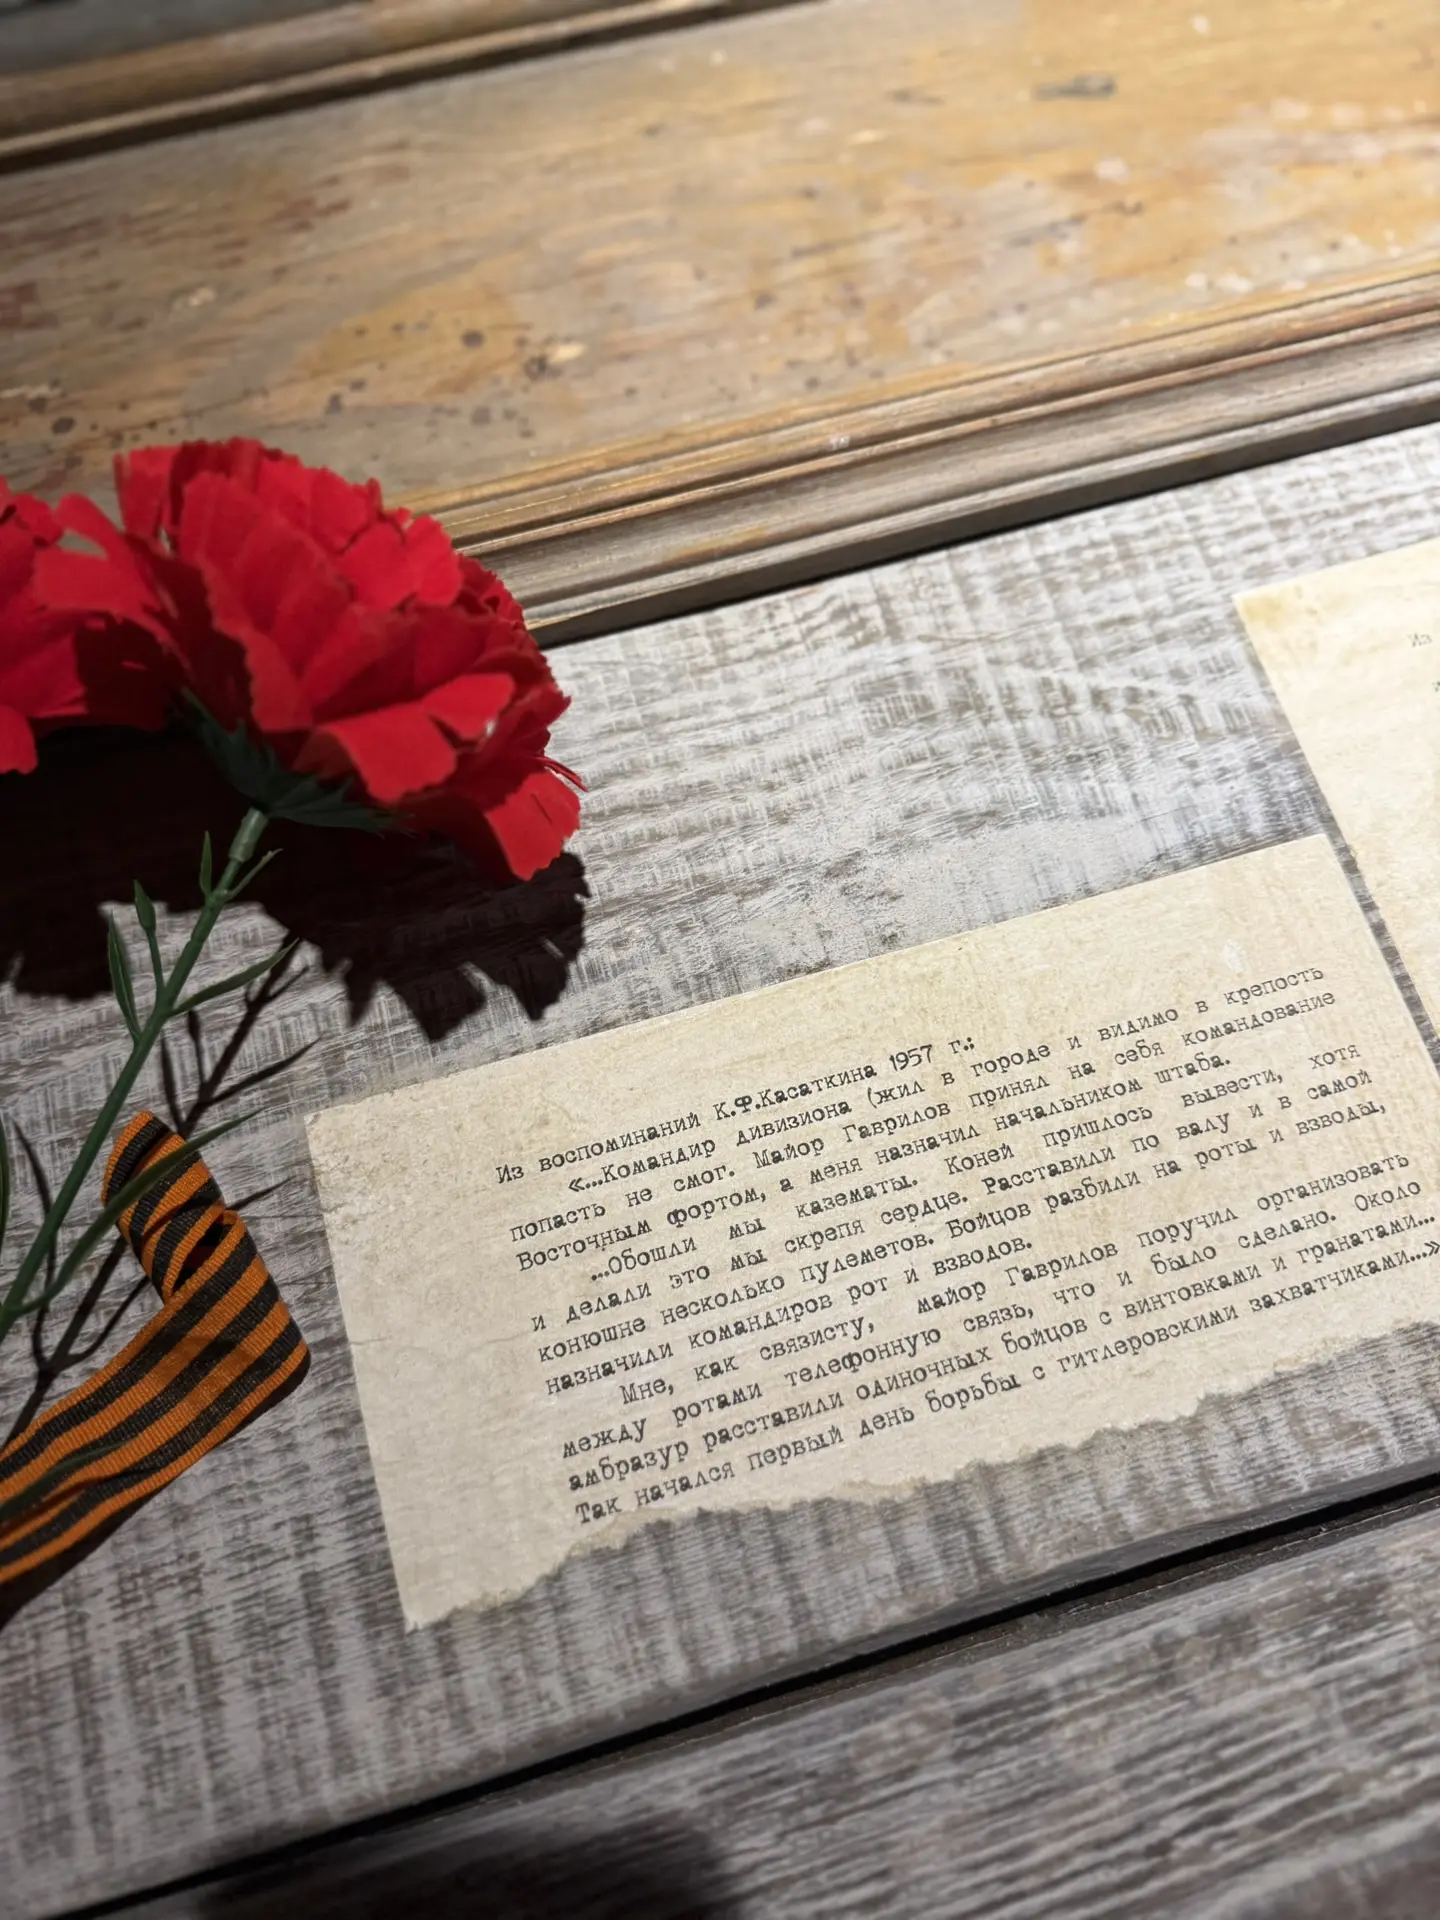 Из воспоминаний К.Ф.Касаткина 1957 г.:
«…Командир дивизиона (жил в городе и видимо в крепость
попасть не смог. Майор Гаврилов принял на себя командование
Восточным фортом, а меня назначил начальником штаба.
…Обошли мы казематы. Коней пришлось вывести, хотя
и делали это мы скрепя сердце. Расставили по валу и в самой
конюшне несколько пулеметов. Бойцов разбили на роты и взводы,
назначили командиров рот и взводов.
Мне, как связисту, майор Гаврилов поручил организовать
между ротами телефонную связь, что и было сделано. Около
амбразур расставили одиночных бойцов с винтовками и гранатами…
Так начался первый день борьбы с гитлеровскими захватчиками…»
Из